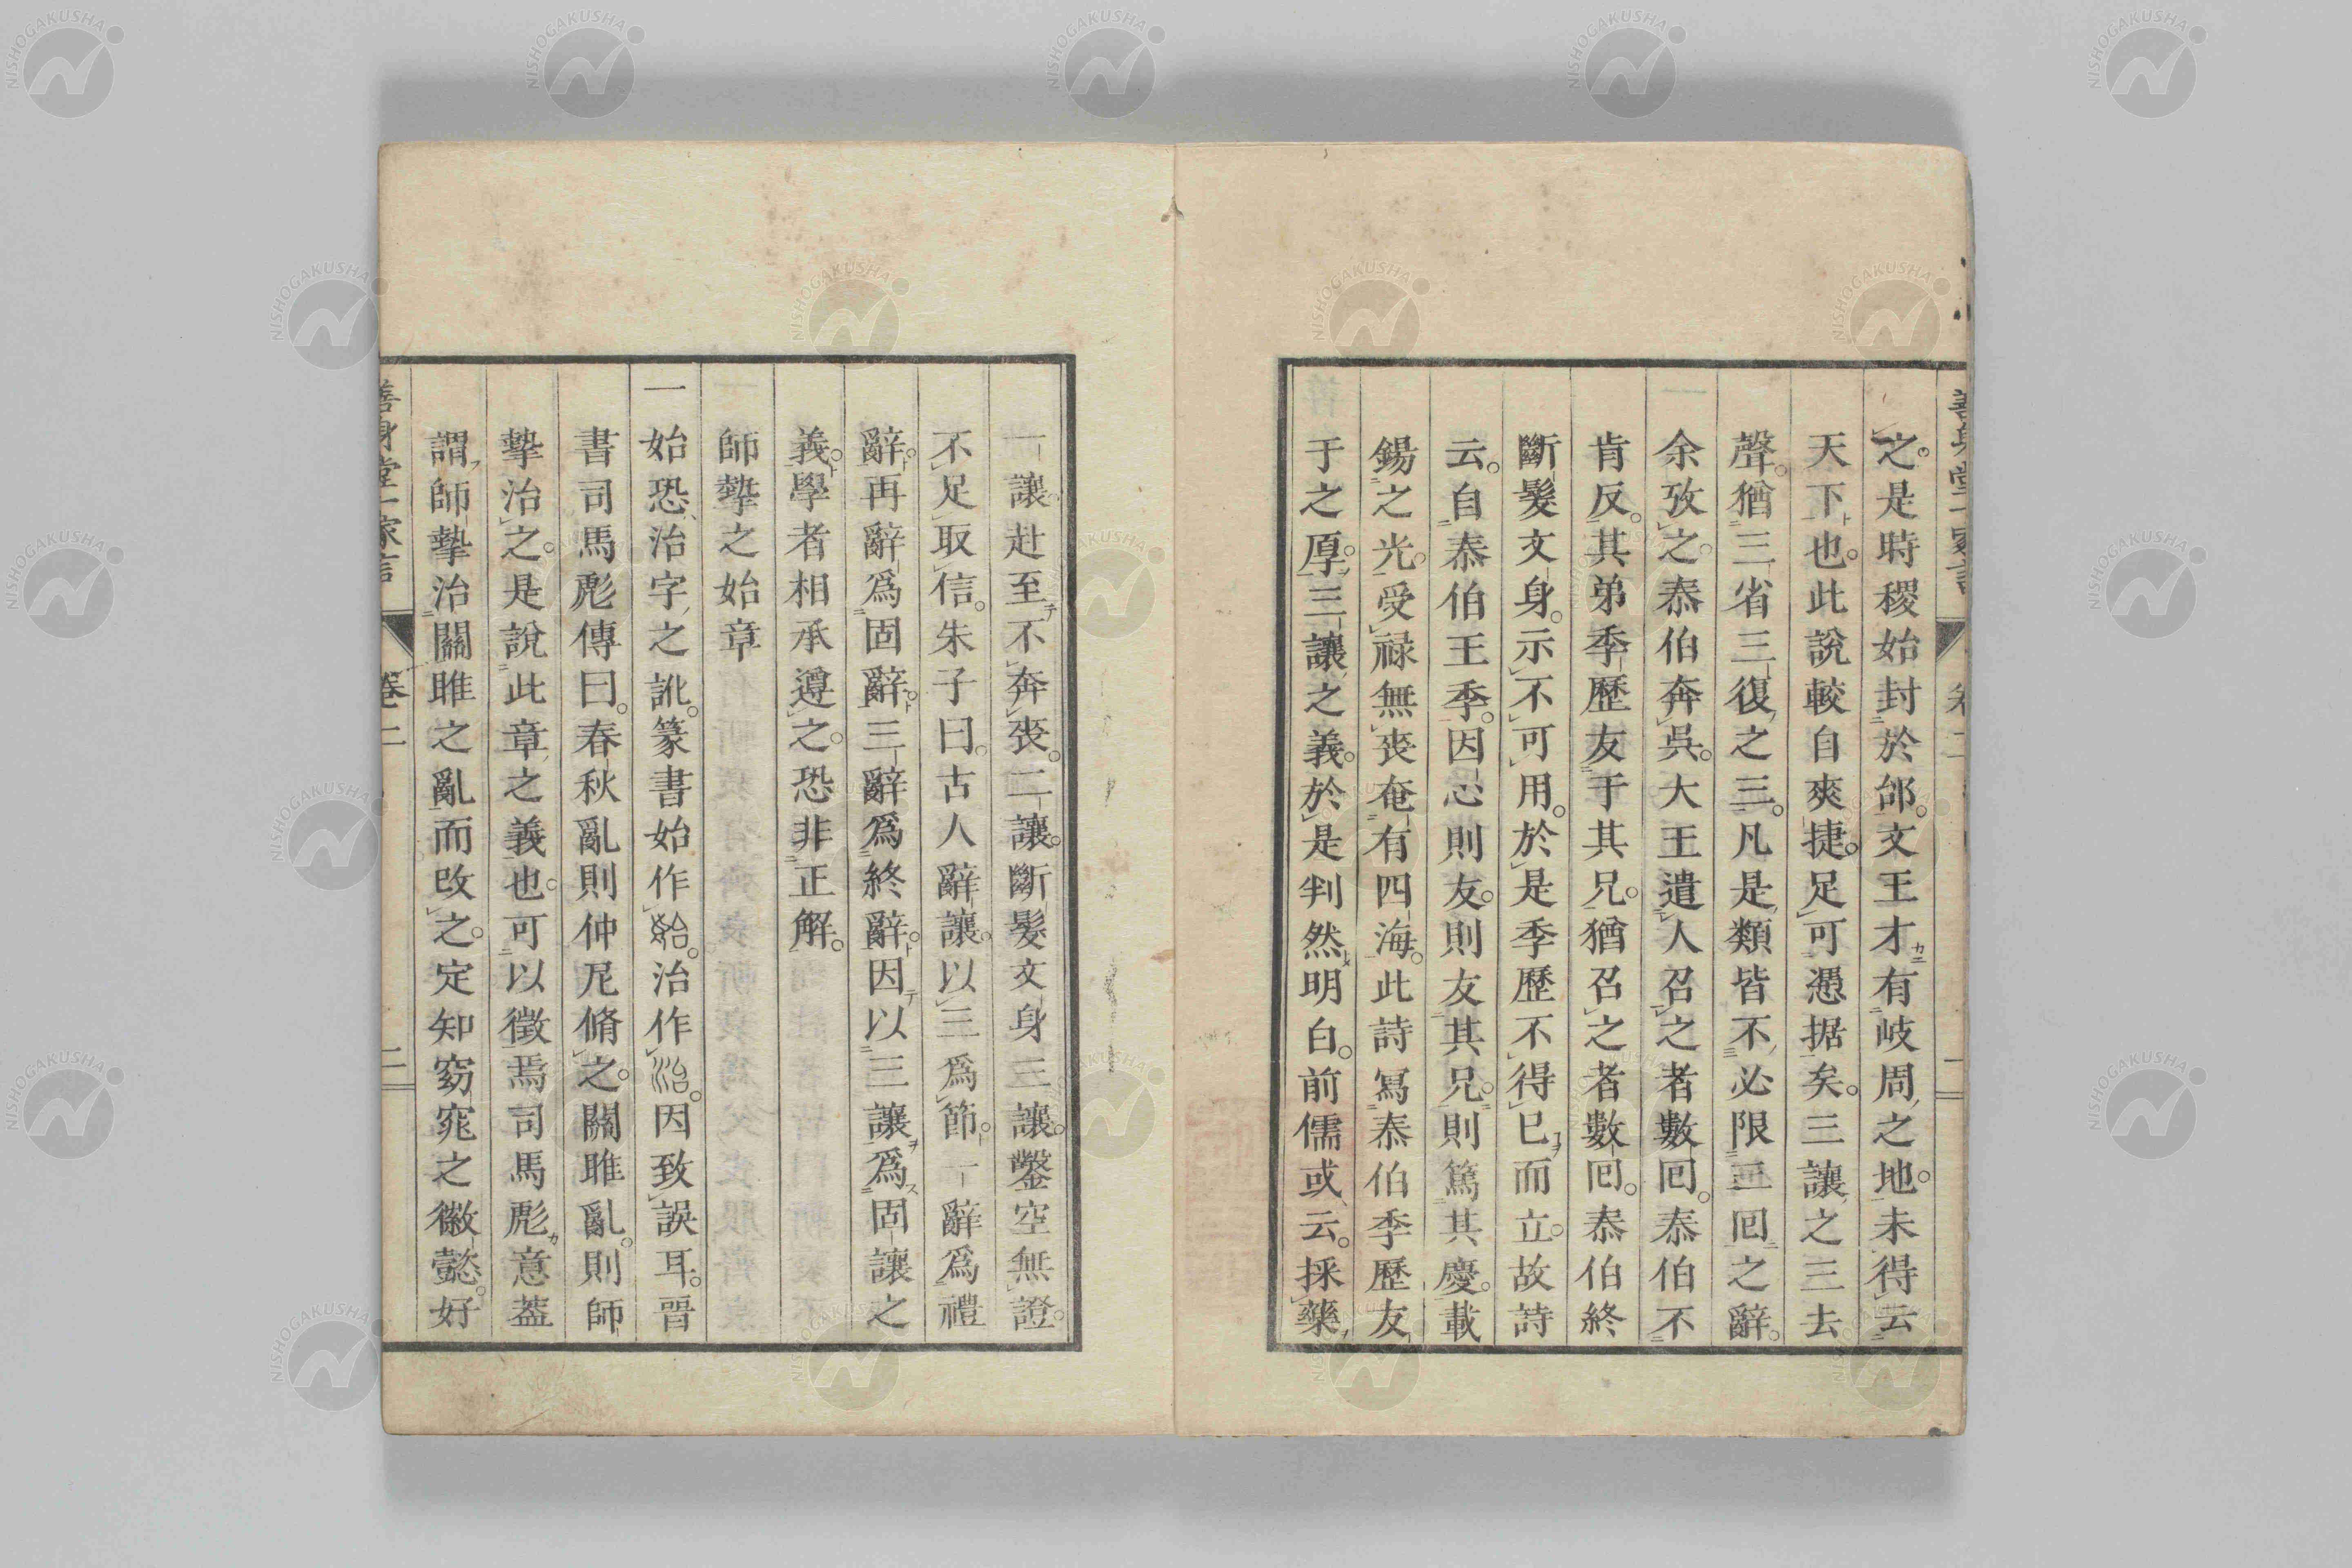 之。是時稷始封於邰。文王才有岐周之地。未得云
天下也。此說較自爽捷。足可憑据矣。三讓之三去
聲。猶三省三復之三。凡是類皆不必限三囘之辭。
余攷之。泰伯奔吳。大王遣人召之者數囘。泰伯不
肯反。其弟季歷友于其兄。猶召之者數囘。泰伯終
斷髮文身。示不可用。於是季歷不得已而立。故詩
云。自泰伯王季。因心則友。則友其兄。則篤其慶。載
錫之光。受祿無喪奄有四海。此詩寫泰伯季歷友
于之厚。三讓之義。於是判然明白。前儒或云。採藥
一讓。赴至不奔喪。二讓。斷髮文身三讓。鑿空無證。
不足取信。朱子曰。古人辭讓。以三爲節。一辭爲禮
辭。再辭爲固辭。三辭爲終辭。因以三讓爲固讓之
義。學者相承遵之。恐非正解。
師摯之始章
一始恐治字之訛。篆書始作。治作。因致誤耳。晉
書司馬彪傳曰。春秋亂則仲尼脩之。關雎亂。則師
摯治之。是說此章之義也。可以徵焉司馬彪意蓋
謂師摯治關雎之亂而改之。定知窈窕之徽懿。好
善身堂一家言 卷二 二